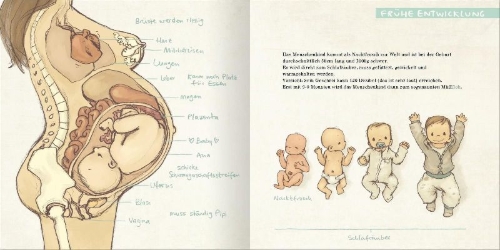 Brüste werden riesig
Herz
Milchdrüsen
Lungen
Leber
kaum noch Platz
für Essen
Magen
Plazenta
♡Baby♡
Arm
schicke
Schwangerschaftsstreifen
Uterus
Blase
muss ständig Pipi
Vagina
FRÜHE ENTWICKLUNG
Das Menschenkind kommt als Nacktfrosch zur Welt und ist bei der Geburt
durchschnittlich 50cm lang und 3500g schwer.
Es wird direkt zum Schlafräuber, muss gefüttert, gewickelt und
warmgehalten werden.
Vorsicht: Sein Geschrei kann 120 Dezibel (das ist sehr laut) erreichen.
Erst mit 6-9 Monaten wird das Menschenkind dann zum sogenannten
Nacktfrosch
Schlafräuber